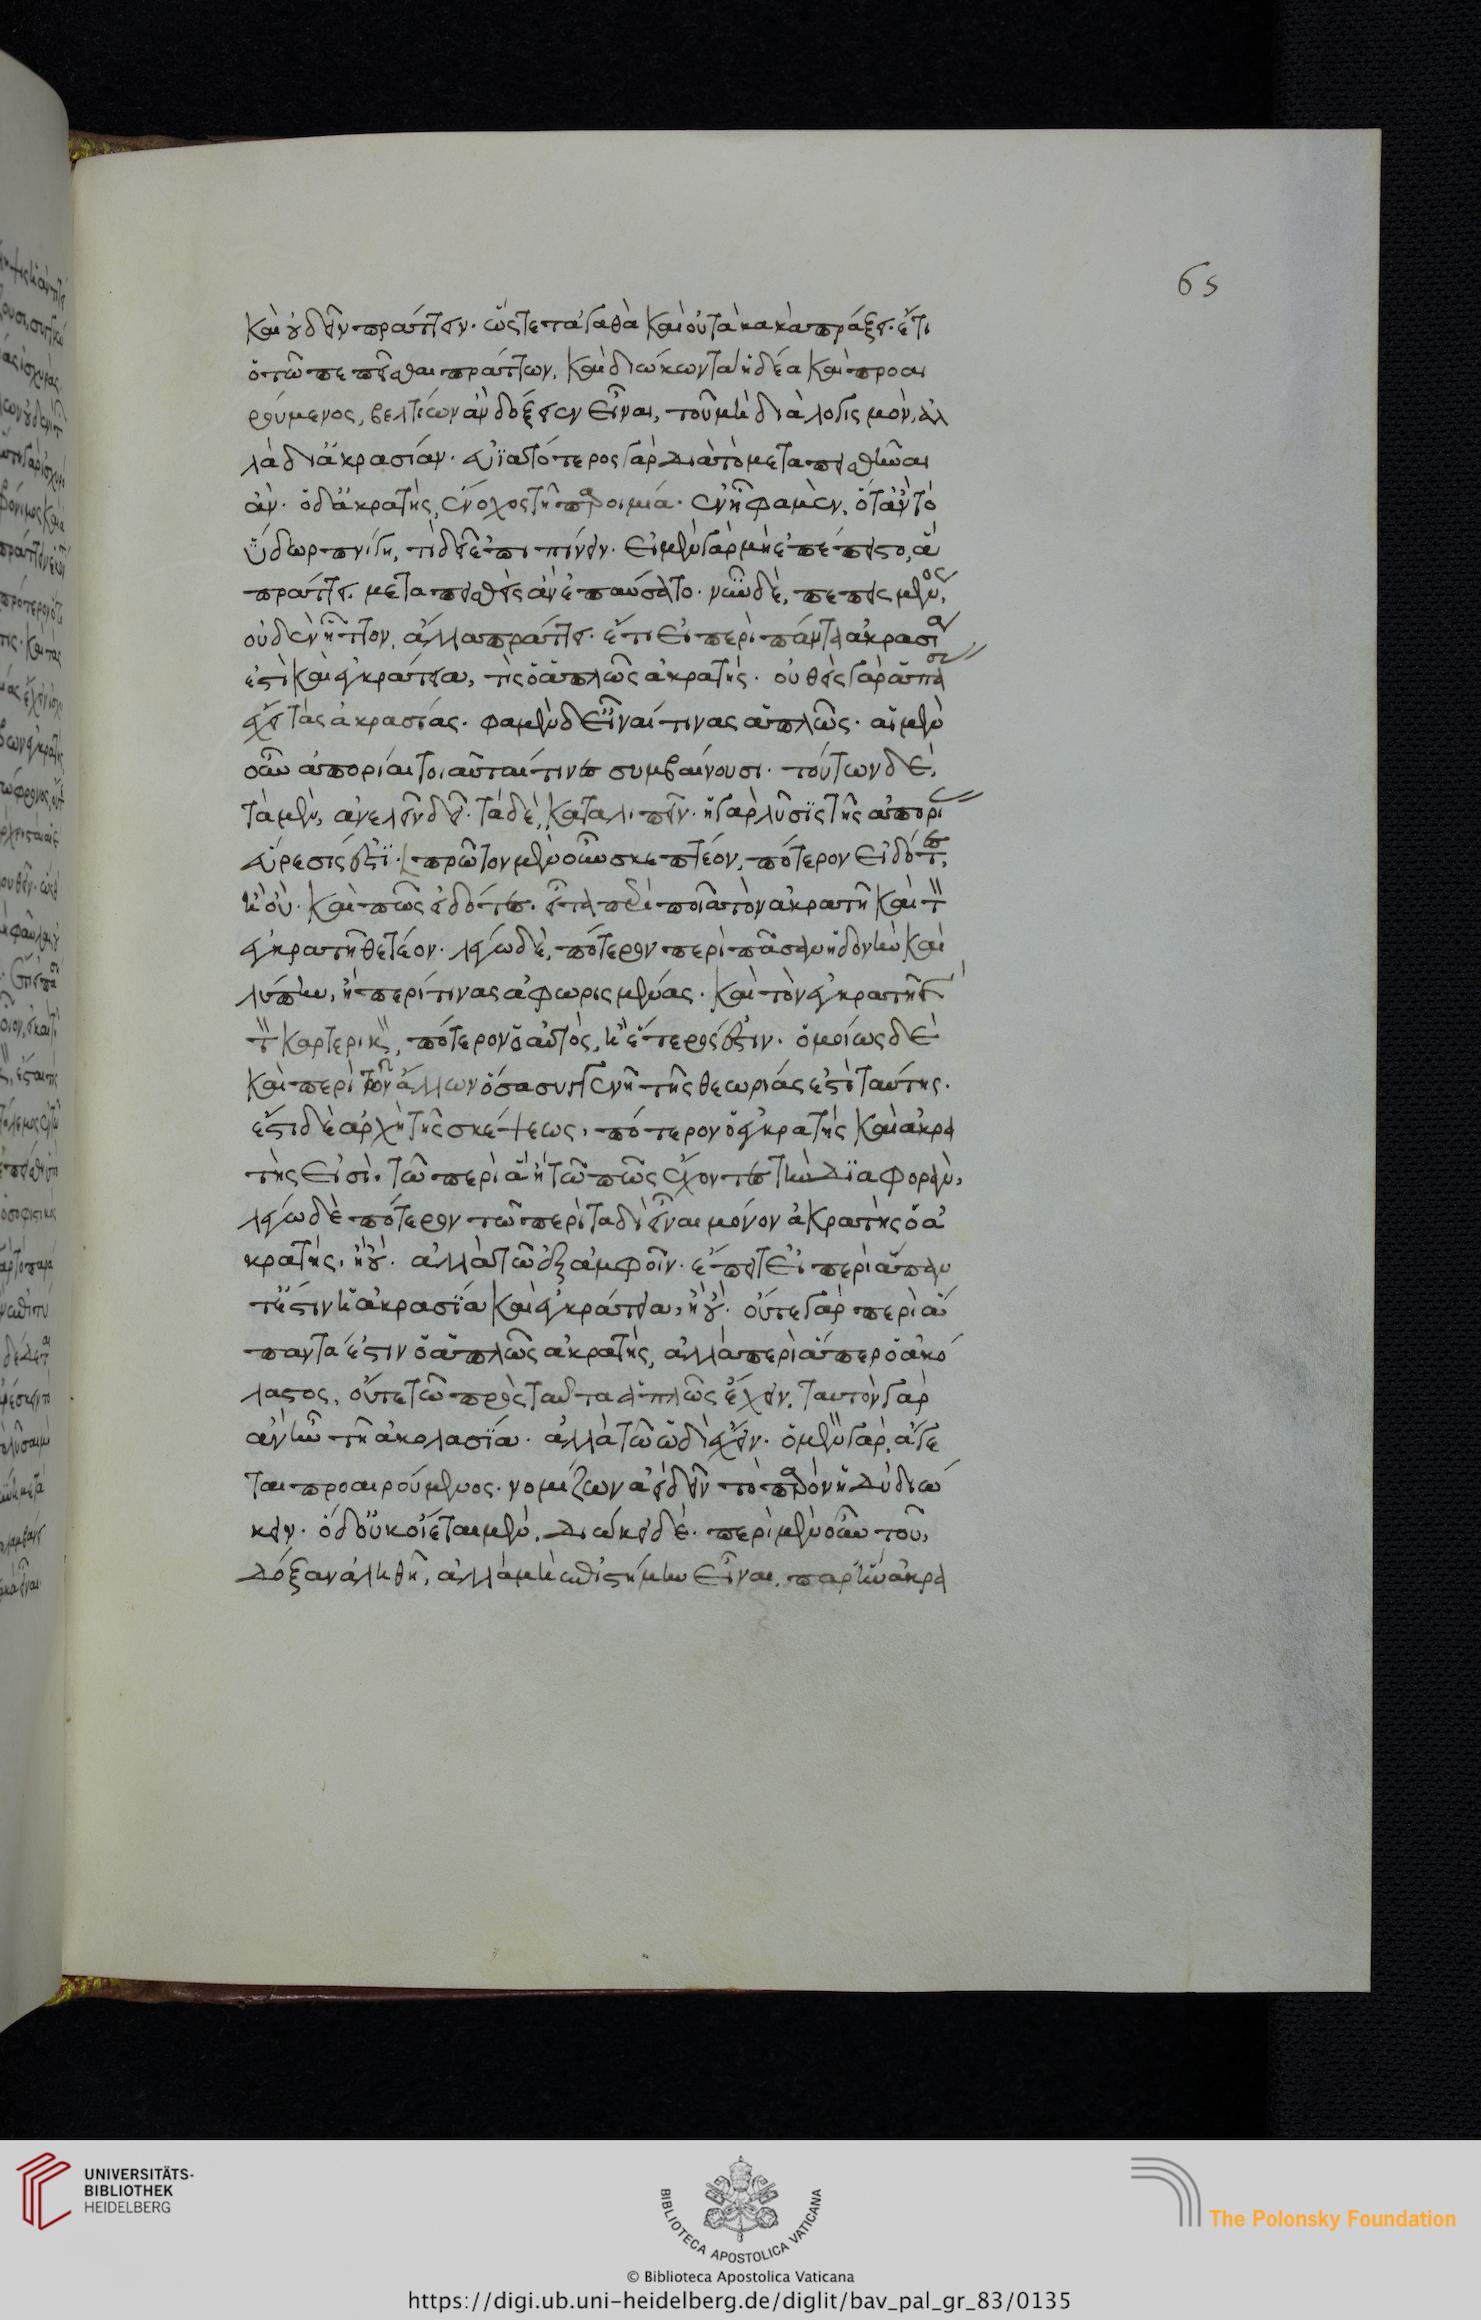 65
καὶ οὐ δεῖν πράττειν. ὥστε τἀγαθὰ καὶ οὐ τὰ κακὰ πράξει. ἔτι
ὁ τῷ πεπεῖσθαι πράττων, καὶ διώκων τὰ ἡδέα καὶ προαι
ρούμενος, βελτίων ἂν δόξειεν εἶναι, τοῦ μὴ διὰ λογισμὸν, ἀλ
λὰ δι' ἀκρασίαν. εὐϊατότερος γὰρ διὰ τὸ μεταπεισθῆναι
ἄν. ὁ δ' ἀκρατὴς, ἔνοχος τῇ παροιμίᾳ. ἐν ᾗ φαμὲν, ὅταν τὸ
ὕδωρ πνίγῃ, τί δεῖ ἐπιπίνειν. εἰ μὲν γὰρ μὴ ἐπέπειστο, ἃ
πράττει. μεταπεισθεὶς ἂν ἐπαύσατο. νῦν δὲ, πεπεισμένος,
οὐδὲν ἧττον, ἄλλα πράττει. ἔτι εἰ περὶ πάντα ἀκρασία
ἐστὶ καὶ ἐγκράτεια, τίς ὁ ἁπλῶς ἀκρατής. οὐθεὶς γὰρ ἁπάσας
ἔχει τὰς ἀκρασίας. φαμὲν δ' εἶναί τινας ἁπλῶς. αἱ μὲν
οὖν ἀπορίαι τοιαῦταί τινες συμβαίνουσι. τούτων δὲ,
τὰ μὲν, ἀνελεῖν δεῖ. τὰ δὲ, καταλιπεῖν. ἡ γὰρ λύσις τῆς ἀπορίας
εὕρεσίς ἐστι. πρῶτον μὲν οὖν σκεπτέον, πότερον εἰδότες,
ἢ οὔ. καὶ πῶς εἰδότες. εἶτα περὶ ποῖα τὸν ἀκρατῆ καὶ τὸν
ἐγκρατῆ θετέον. λέγω δὲ, πότερον περὶ πᾶσαν ἡδονὴν καὶ
λύπην, ἢ περί τινας ἀφωρισμένας. καὶ τὸν ἐγκρατῆ καὶ
τὸν καρτερικὸν, πότερον ὁ αὐτὸς, ἢ ἕτερός ἐστιν. ὁμοίως δὲ
καὶ περὶ τῶν ἄλλων ὅσα συγγενῆ τῆς θεωρίας ἐστὶ ταύτης.
ἔστι δὲ ἀρχὴ τῆς σκέψεως, πότερον ὁ ἐγκρατὴς καὶ ἀκρα
τής εἰσι, τῷ περὶ ἃ ἢ τῷ πῶς ἔχοντες τὴν διαφορὰν,
λέγω δὲ πότερον τῷ περὶ ταδὶ εἶναι μόνον ἀκρατὴς ὁ ἀ
κρατὴς, ἢ οὔ. ἀλλὰ τῷ ἐξ ἀμφοῖν. ἔπειτ' εἰ περὶ ἅπαν
τ' ἐστιν ἡ ἀκρασία καὶ ἐγκράτεια, ἢ οὔ. οὔτε γὰρ περὶ ἅ
παντα ἐστὶν ὁ ἁπλῶς ἀκρατὴς, ἀλλὰ περὶ ἅπερ ὁ ἀκό
λαστος, οὔτε τῷ πρὸς ταῦτα ἁπλῶς ἔχειν. ταυτὸν γὰρ
ἂν ἦν τῇ ἀκολασίᾳ. ἀλλὰ τῷ ὡδὶ ἔχειν. ὁ μὲν γὰρ ἄγε
ται προαιρούμενος. νομίζων ἀεὶ δεῖν τὸ παρὸν ἡδὺ διώ
κειν. ὁ δ' οὐκ οἴεται μὲν, διώκει δέ. περὶ μὲν οὖν τοῦ,
δόξαν ἀληθῆ, ἀλλὰ μὴ ἐπιστήμην εἶναι, παρ' ἣν ἀκρα
UNIVERSITÄTS-
BIBLIOTHEK
HEIDELBERG
BIBLIOTECA APOSTOLICA VATICANA
The Polonsky Foundation
© Biblioteca Apostolica Vaticana
https://digi.ub.uni-heidelberg.de/diglit/bav_pal_gr_83/0135